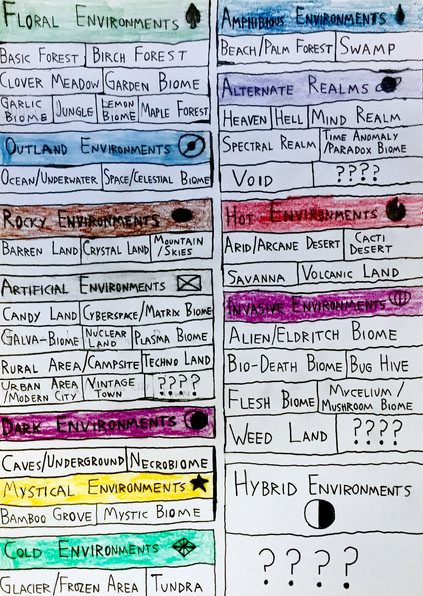 Floral Environments
Basic Forest Birch Forest
Clover Meadow Garden Biome
Garlic Biome Jungle Lemon Biome Maple Forest
Outland Environments
Ocean/Underwater Space/Celestial Biome
Rocky Environments
Barren Land Crystal Land Mountain/Skies
Artificial Environments
Candy Land Cyberspace/Matrix Biome
Galva-Biome Nuclear Land Plasma Biome
Rural Area/Campsite Techno Land
Urban Area/Modern City Vintage Town ????
Dark Environments
Caves/Underground Necrobiome
Mystical Environments
Bamboo Grove Mystic Biome
Cold Environments
Glacier/Frozen Area Tundra
Amphibious Environments
Beach/Palm Forest Swamp
Alternate Realms
Heaven Hell Mind Realm
Spectral Realm Time Anomaly/Paradox Biome
Void ????
Hot Environments
Arid/Arcane Desert Cacti Desert
Savanna Volcanic Land
Invasive Environments
Alien/Eldritch Biome
Bio-Death Biome Bug Hive
Flesh Biome Mycelium/Mushroom Biome
Weed Land ????
Hybrid Environments
????